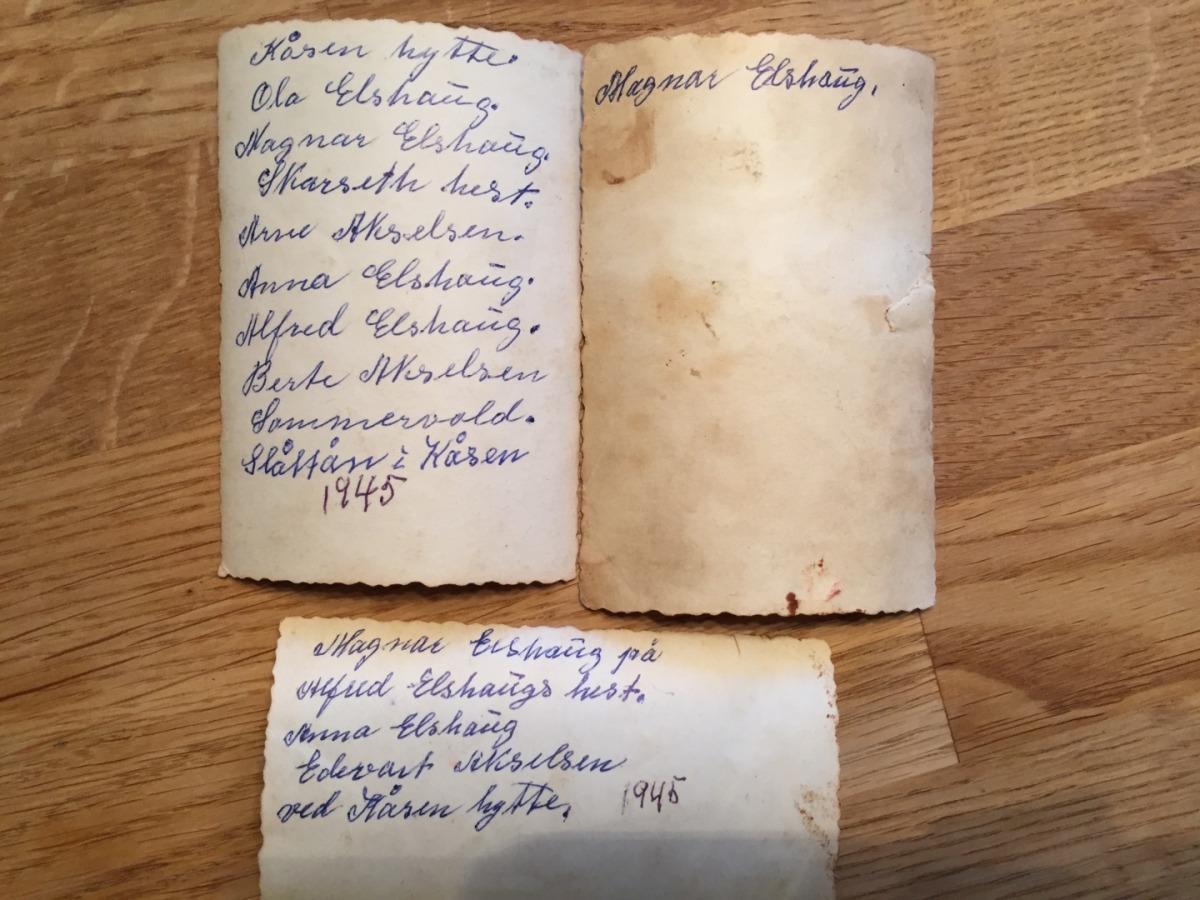 Kåsen hytte.
Ola Elshaūg.
Magnar Elshaūg.
Skarseth hest.
Arne Akselsen.
Anna Elshaūg.
Alfred Elshaūg.
Berte Akselsen
Sommervold.
Slåttån i Kåsen
1945
Magnar Elshaūg.
Magnar Elshaūg på
Alfred Elshaūgs hest.
Anna Elshaūg
Edevart Akselsen
ved Kåsen hytte. 1945